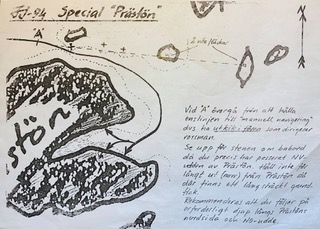 JJ-94 Special "Prästön"
"A"
2 röda flaskor
Prästön
Vid "A" övergå från att hålla
enslinjen till "manuell navigering"
dvs ha utkik i fören som dirigerar
rorsman.
Se upp för stenen om babord
då du precis har passerat NV-
udden av Prästön. Håll inte för
långt ut (mer) från Prästön då
där finns ett långsträckt grund
fick.
Rekommenderas att du följer på
erforderligt djup längs Prästöns
nordsida och NO-udde.